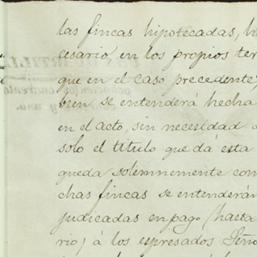 las fincas hipotecadas, 
cesario, en los propios ter
que en el caso precedente
bien se entenderá hecha
en el acto, sin necesidad
solo el título que dá esta
queda solemnemente con
chas fincas se entenderán
judicadas en pago (hasta
rio) á los espresados Seño